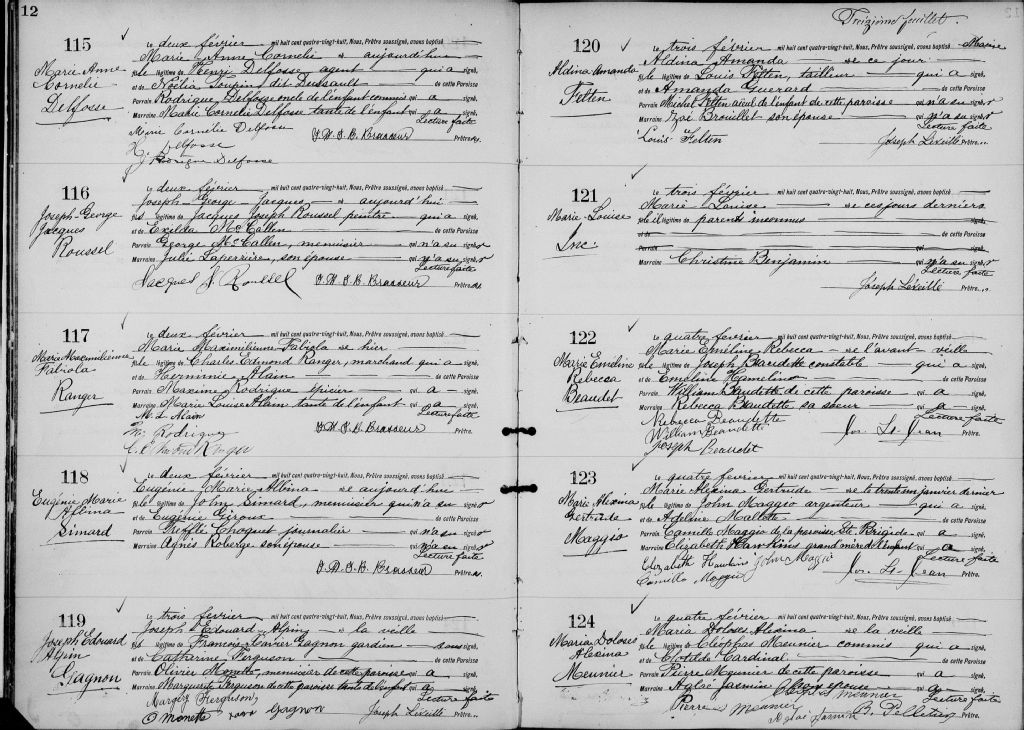 12
115
Marie Anne
Cornelie
Delfosse
Le deux février mil huit cent quatre-vingt-huit, Nous, Prêtre soussigné, avons baptisé
Marie Anne Cornelie née aujourd'hui
fille légitime de Henri Delfosse agent qui a signé,
et de Noëlia Toupin dit Dussault de cette Paroisse
Parrain Rodrigue Delfosse oncle de l'enfant commis qui a
Marraine Marie Cornelie Delfosse tante de l'enfant qui a signé,
Lecture faite
Marie Cornelie Delfosse
J. U. J. B. Brasseur Prêtre
H. Delfosse
J Rodrigue Delfosse
116
Joseph George
Jacques
Roussel
Le deux février mil huit cent quatre-vingt-huit, Nous, Prêtre soussigné, avons baptisé
Joseph George Jacques né aujourd'hui
fils légitime de Jacques Joseph Roussel peintre qui a signé,
et de Exilda McCallen de cette Paroisse
Parrain George McCallen, menuisier qui n'a su signer
Marraine Julie Laperrière, son épouse qui n'a su signer
Lecture faite
Jacques J. Roussel J. U. J. B. Brasseur Prêtre
117
Marie Maximilienne
Fabiola
Ranger
Le deux février mil huit cent quatre-vingt-huit, Nous, Prêtre soussigné, avons baptisé
Marie Maximilienne Fabiola née hier
fille légitime de Charles Edmond Ranger, marchand qui a signé,
et de Herminie Alain de cette Paroisse
Parrain Maxime Rodrigue épicier qui a signé,
Marraine Marie Louise Alain tante de l'enfant qui a signé,
Lecture faite
M. L Alain
M. Rodrigue J. U. J. B. Brasseur Prêtre.
118
Eugénie Marie
Albina
Simard
Le deux février mil huit cent quatre-vingt-huit, Nous, Prêtre soussigné, avons baptisé
Eugénie Marie Albina née aujourd'hui
fille légitime de John Simard, menuisier qui n'a su signer
et de Eugénie Giroux de cette Paroisse
Parrain Treffle Choquet journalier qui n'a su signer
Marraine Agnès Roberge son épouse qui n'a su signer
Lecture faite
J. U. J. B. Brasseur Prêtre
119
Joseph Edouard
Alpin
Gagnon
Le trois février mil huit cent quatre-vingt-huit, Nous, Prêtre soussigné, avons baptisé
Joseph Edouard Alpin né la veille
fils légitime de François Xavier Gagnon gardien sous signé,
et de Catharine Ferguson de cette Paroisse
Parrain Olivier Monette, menuisier de cette paroisse qui a signé,
Marraine Marguerite Ferguson de cette paroisse tante de l'enfant qui a signé,
Lecture faite
Margey Ferguson
O Monette Gagnon Joseph Léveillé Prêtre.
Treizième feuillet.
120
Aldina Amanda
Felten
Le trois février mil huit cent quatre-vingt-huit, Nous, Prêtre soussigné, avons baptisé Marie
Aldina Amanda née ce jour
fille légitime de Louis Felten, tailleur qui a signé,
et de Amanda Guerard de cette Paroisse
Parrain Michel Felten aïeul de l'enfant de cette paroisse qui n'a su signer
Marraine Zoé Brouillet son épouse qui n'a su signer
Lecture faite
Louis Felten Joseph Léveillé Prêtre
121
Marie Louise
Inc.
Le trois février mil huit cent quatre-vingt-huit, Nous, Prêtre soussigné, avons baptisé
Marie Louise née ces jours derniers
fille légitime de parents inconnus signé,
et de de cette Paroisse
Parrain qui signé,
Marraine Christine Benjamin qui n'a su signer
Lecture faite
Joseph Léveillé
Prêtre
122
Marie Emeline
Rebecca
Beaudet
Le quatre février mil huit cent quatre-vingt-huit, Nous, Prêtre soussigné, avons baptisé
Marie Emeline Rebecca née l'avant veille
fille légitime de Joseph Beaudette constable qui a signé,
et de Emeline Hamelin de cette Paroisse
Parrain William Beaudette de cette paroisse qui a signé,
Marraine Rebecca Beaudette sa soeur qui a signé,
Lecture faite
Rebecca Beaudette
William Beaudette Jos. St-Jean Prêtre.
Joseph Beaudet
123
Marie Alexina
Gertrude
Maggio
Le quatre février mil huit cent quatre-vingt-huit, Nous, Prêtre soussigné, avons baptisé
Marie Alexina Gertrude née le trente un janvier dernier
fille légitime de John Maggio argenteur qui a signé,
et de Adeline Mallette de cette Paroisse
Parrain Camille Maggio de la paroisse Ste Brigide qui a signé,
Marraine Elizabeth Hawkins grand mère de l'enfant qui a signé,
Lecture faite
Elizabeth Hawkins John Maggio
Camille Maggio Jos. St-Jean Prêtre.
124
Maria Doloses
Alexina
Meunier
Le quatre février mil huit cent quatre-vingt-huit, Nous, Prêtre soussigné, avons baptisé
Maria Doloses Alexina née la veille
fille légitime de Cléophas Meunier commis qui a signé,
et de Clotilde Cardinal de cette Paroisse
Parrain Pierre Meunier de cette paroisse qui a signé,
Marraine Aglaé Jasmin son épouse qui a signé,
Lecture faite
Pierre Meunier
Aglaé Jasmin B. Pelletier Prêtre.